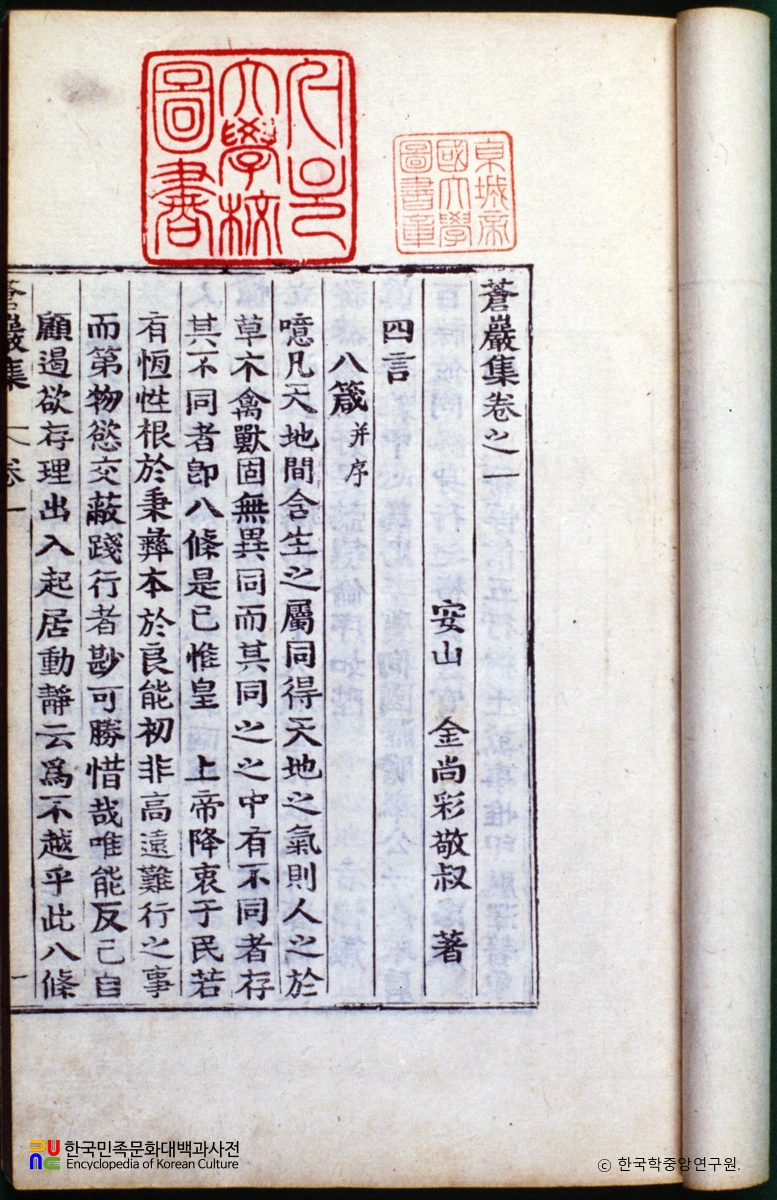 서울大學校圖書
京城帝國大學圖書章
蒼巖集卷之一
安山 金尚彩敬叔 著
四言
八箴 并序
噫凡天地間含生之屬同得天地之氣則人之於
草木禽獸固無異同而其同之之中有不同者存
其不同者卽八條是已惟皇 上帝降衷于民若
有恆性根於秉彝本於良能初非高遠難行之事
而第物慾交蔽踐行者尠可勝惜哉唯能反己自
顧遏欲存理出入起居動靜云爲不越乎此八條
蒼巖集 卷一 一
한국민족문화대백과사전
Encyclopedia of Korean Culture
© 한국학중앙연구원.